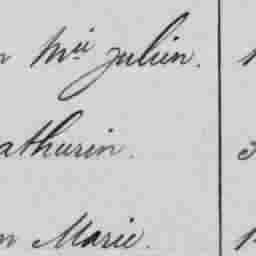 n Mie Julien.
athurin.
n Marie.